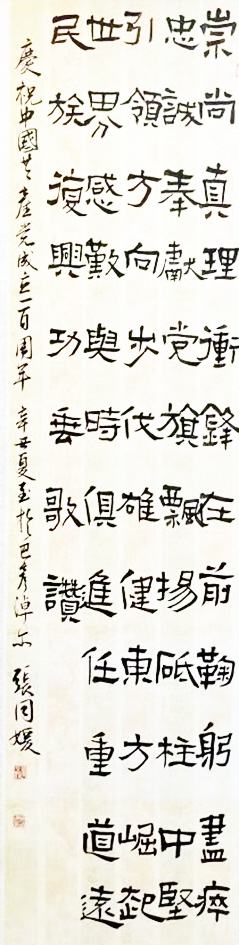 崇尚真理衝鋒在前鞠躬盡瘁
忠誠奉獻党旗飄揚砥柱中堅
引領方向步伐雄健東方崛起
世界感歎與時俱進任重道遠
民族復興功垂歌讚
慶祝中國共產党成立一百周年 辛丑夏至於巴彥淖尔 張同媛